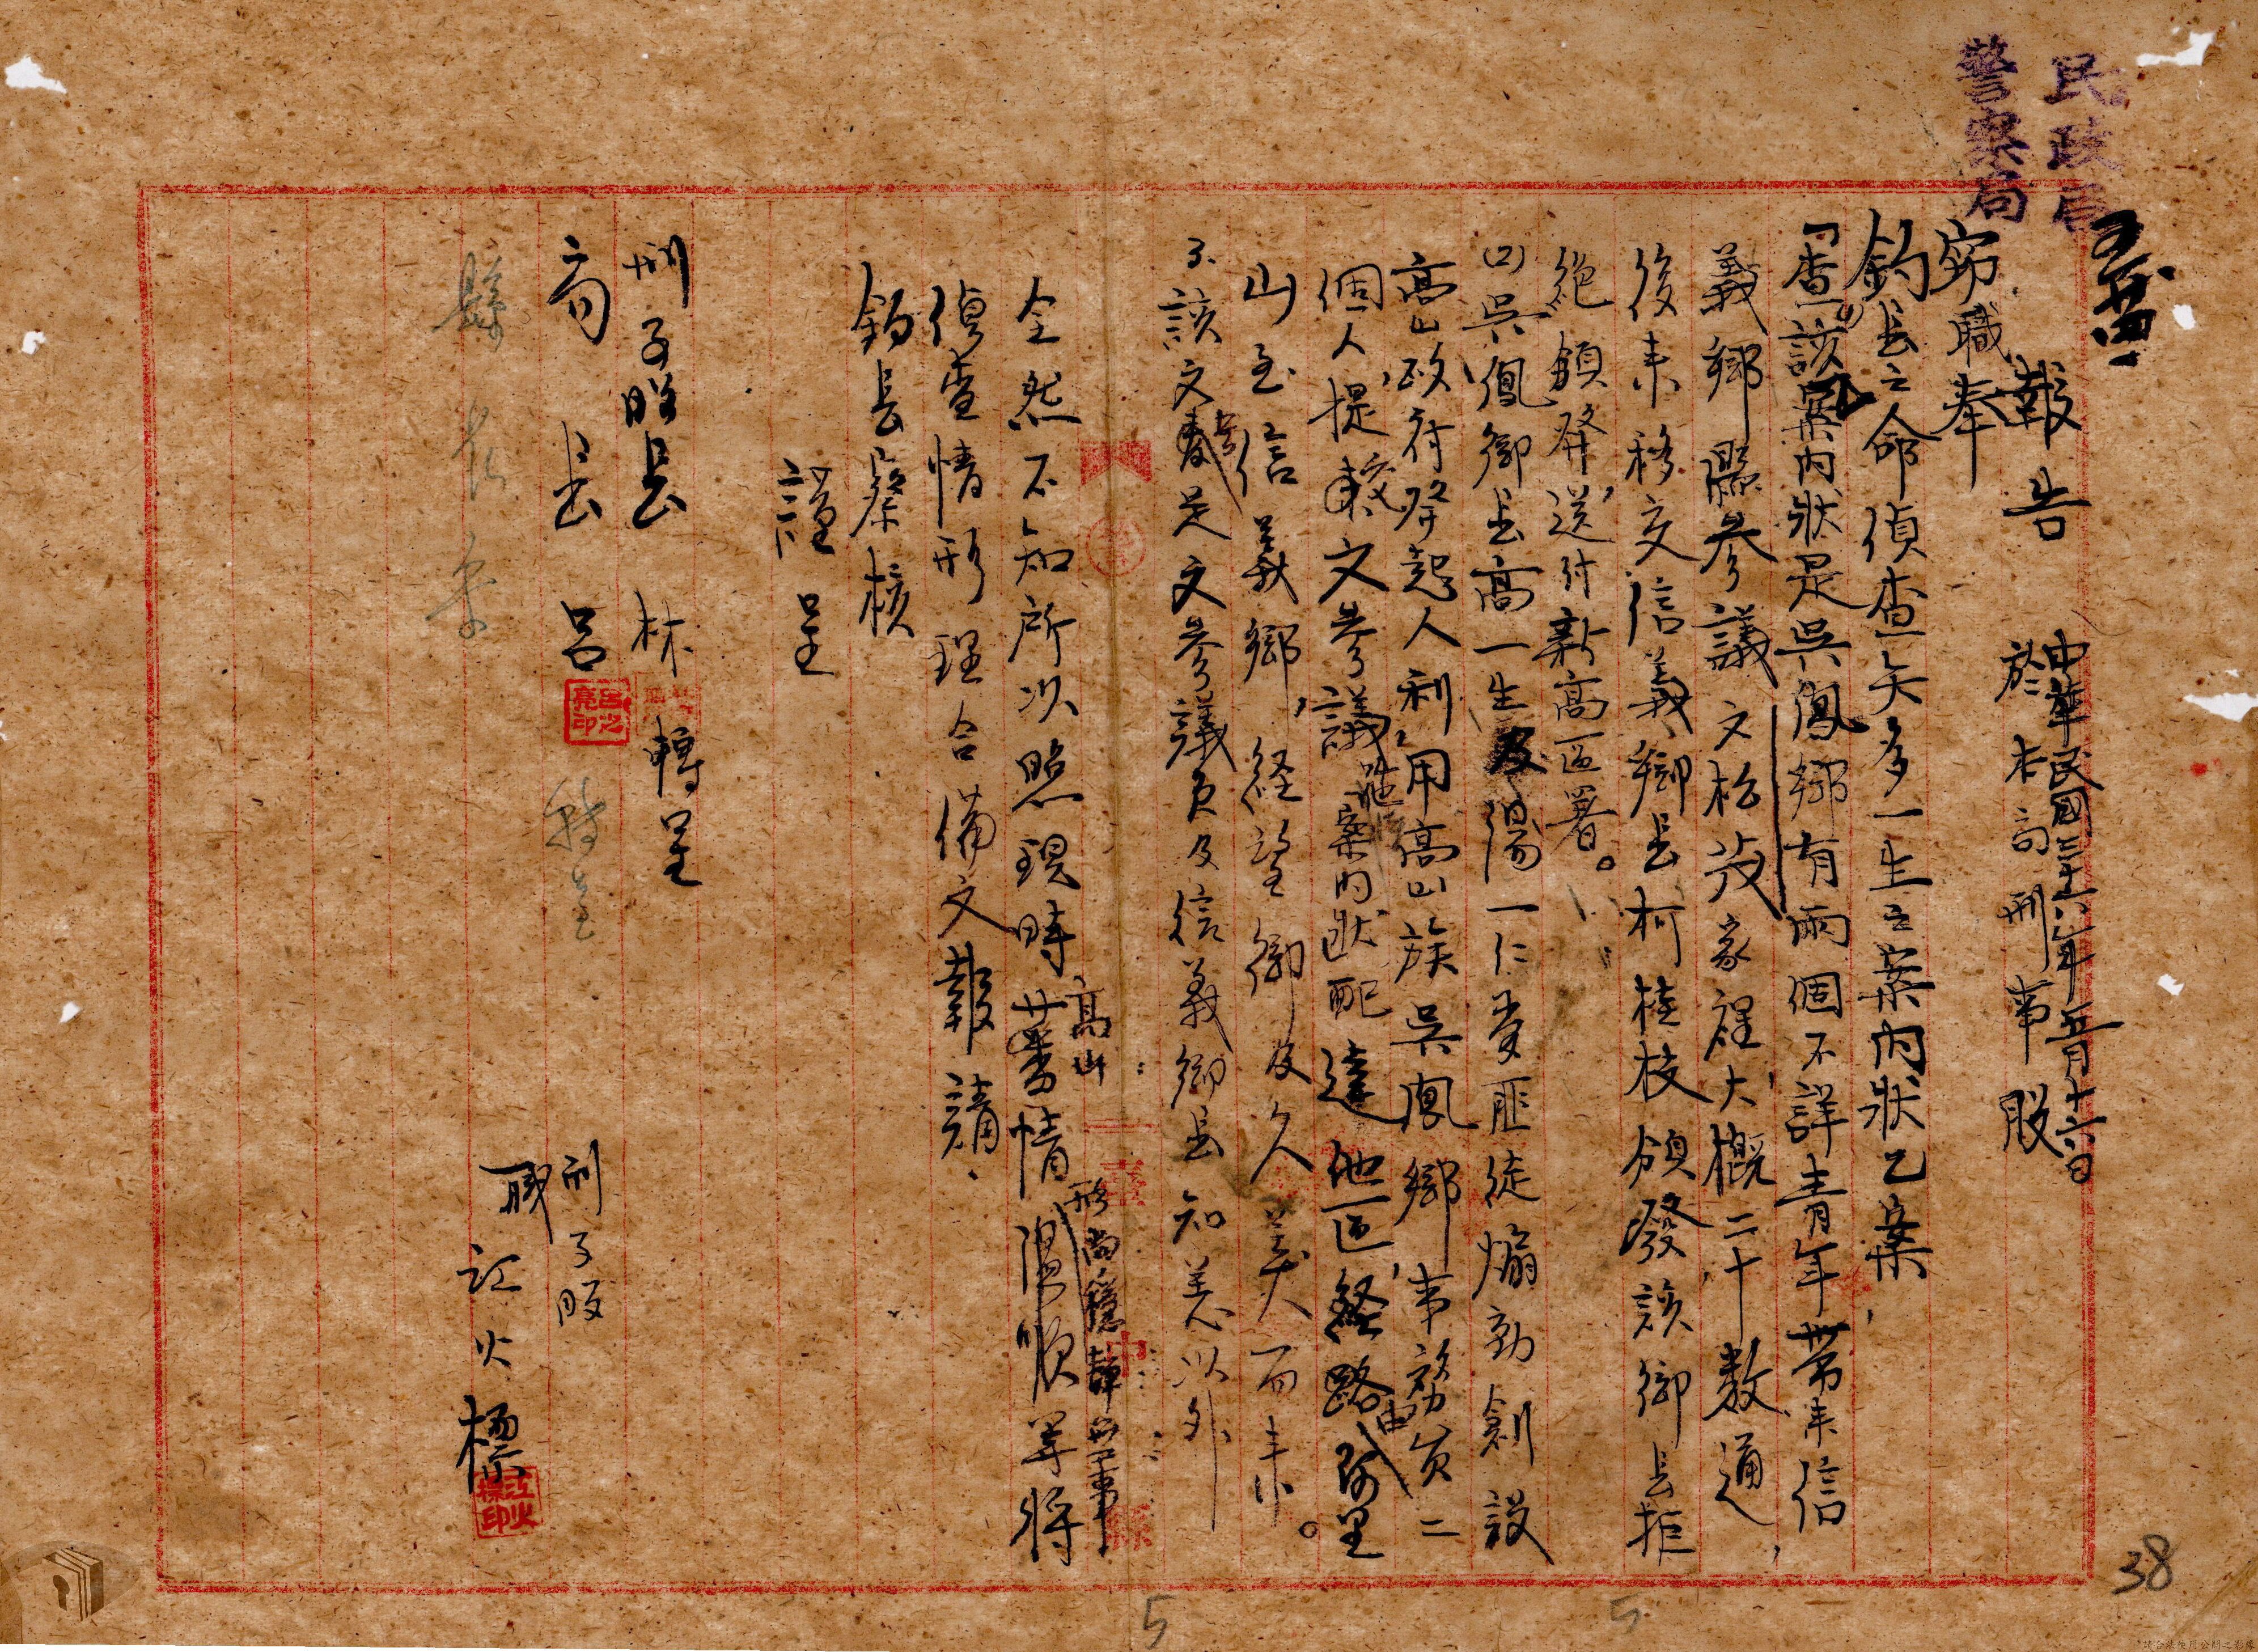 民政局
警察局
報告 中華民國三十六年五月十六日
於本局刑事股
窃職奉
鈞長之命偵查矢多一生之案內狀乙案,
「查該案內狀是吳鳳鄉有兩個不詳青年帶来信
義鄉縣參議文松茂家裡大概二十数通,
後来移交信義鄉長柯桂枝領發該鄉長拒
絶領發送付新高区署。
(二)吳鳳鄉長高一生及湯一仁受匪徒煽動創設
高山政府發起人利用高山族吳鳳鄉事務員二
個人提交文參議進案內狀配達他区経路由阿里
山至信義鄉,経望鄉及久美而来。
3. 該文書是文參議員及信義鄉長知悉以外
全然不知所以照現時高山蕃情形尚穩靜無事温順等將
偵查情形理合備文報請、
鈞長察核
謹呈
刑事股長 林 轉呈
局長 呂 轉呈
呂之亮印
縣長
刑事股
職 江火標
江火標印
38
5
5